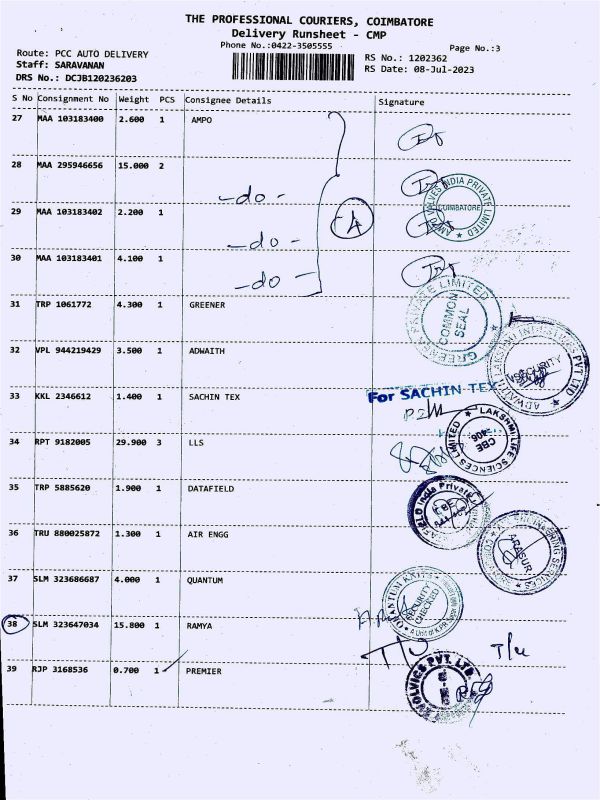 THE PROFESSIONAL COURIERS, COIMBATORE
Delivery Runsheet - CMP
Phone No.:0422-3505555
Page No.:3
Route: PCC AUTO DELIVERY
Staff: SARAVANAN
DRS No.: DCJB120236203
RS No.: 1202362
RS Date: 08-Jul-2023
S No Consignment No Weight PCS Consignee Details Signature
27 MAA 103183400 2.600 1 AMPO
28 MAA 295946656 15.000 2
-do-
29 MAA 103183402 2.200 1
-do-
30 MAA 103183401 4.100 1
-do-
A
VALVES INDIA PRIVATE LIMITED
COIMBATORE
31 TRP 1061772 4.300 1 GREENER
PRIVATE LIMITED
COMMON SEAL
32 VPL 944219429 3.500 1 ADWAITH
SECURITY
33 KKL 2346612 1.400 1 SACHIN TEX
For SACHIN TEX
34 RPT 9182005 29.900 3 LLS
LAKSHMI LIFE SCIENCES LIMITED
CBE
35 TRP 5885620 1.900 1 DATAFIELD
India Private
36 TRU 880025872 1.300 1 AIR ENGG
ENGINEERING SERVICES
ARASUR
37 SLM 323686687 4.000 1 QUANTUM
QUANTUM KNITS
SECURITY CHECKED
A Unit of KPR
38 SLM 323647034 15.800 1 RAMYA
39 RJP 3168536 0.700 1 PREMIER
PVT. LTD.